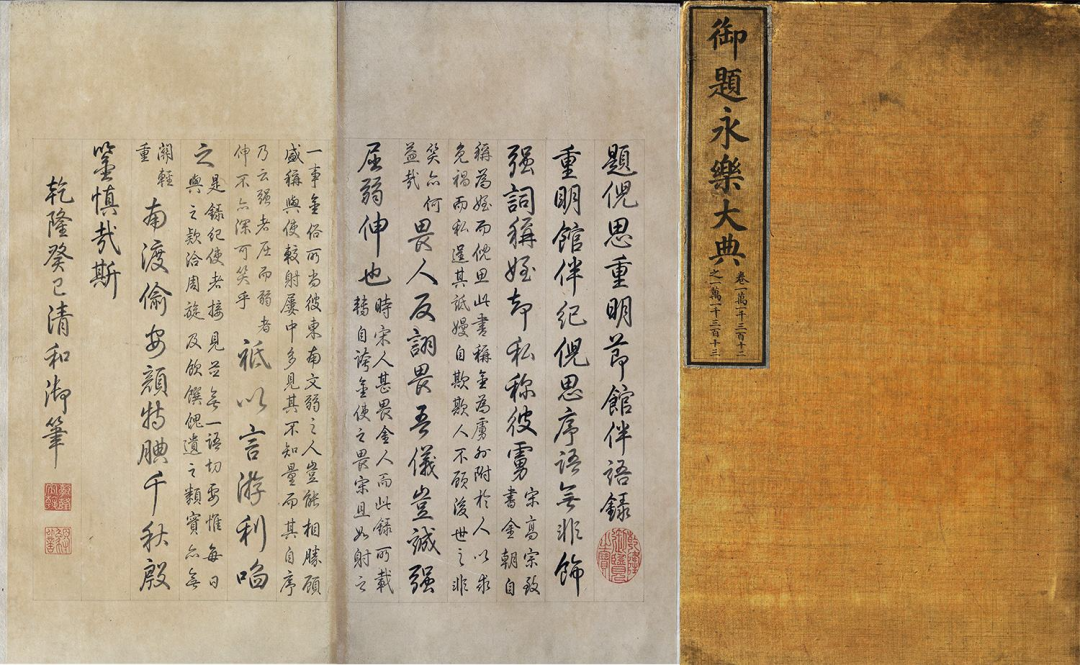 御題永樂大典
卷一萬一千三百十二
之一萬一千三百十三
題倪思重明節館伴語錄
乾隆御覽之寶
重明館伴紀倪思序語無非飾
强詞稱姪却私称彼虜
宋高宗致
書金朝自
稱為姪而倪思此書稱金為虜外附於人以求
免禍而私逞其詆嫚自欺欺人不顧後世之非
笑亦何
益哉
畏人反詡畏吾儀豈誠强
屈弱伸也
時宋人甚畏金人而此錄所載
轉自誇金使之畏宋且如射之
一事金俗所尚彼東南文弱之人豈能相勝顧
盛稱與使較射屢中多見其不知量而其自序
乃云强者屈而弱者
伸不亦深可笑乎
祗以言游利啗
之
是錄紀使者接見並無一語切要惟每日
與之款洽周旋及飲饌餽遺之類實亦無
關輕
重
南渡偷安顏特腆千秋殷
鑒慎哉斯
乾隆癸巳清和御筆